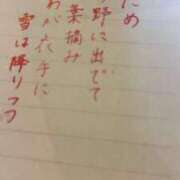 ため
野に出でて
菜摘み
わが衣手に
雪は降りつつ